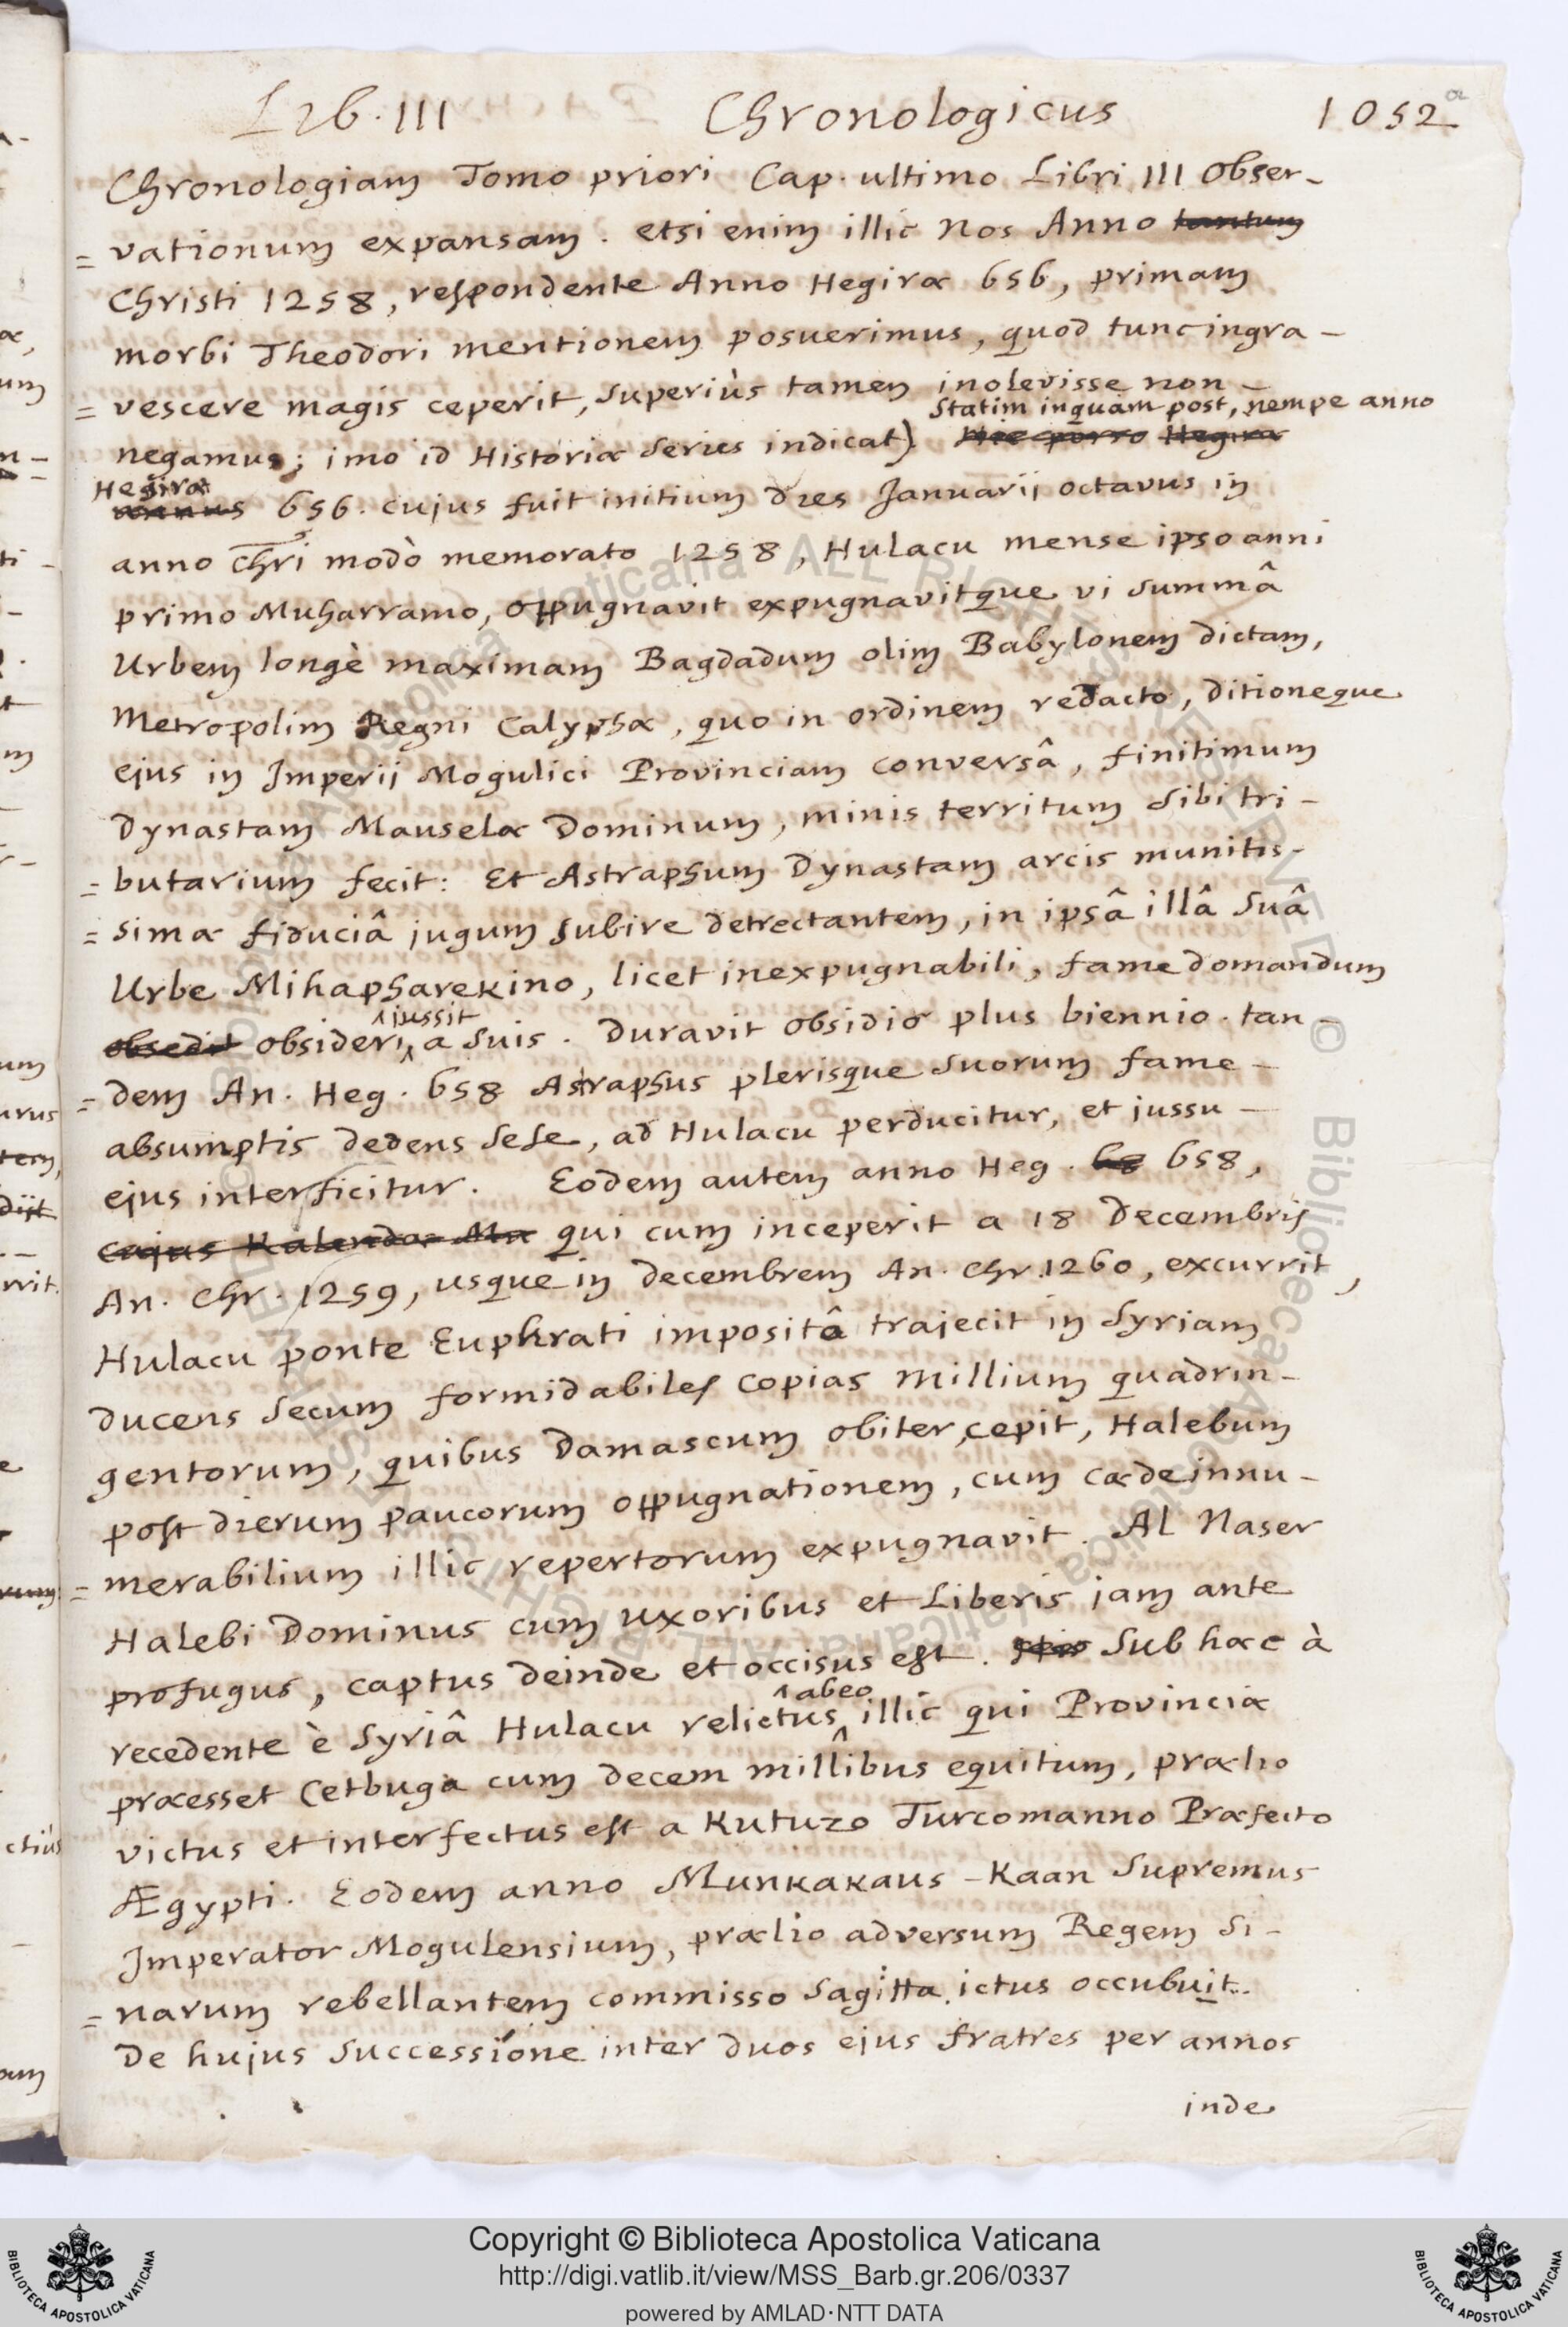 Lib. III Chronologicus 1052 a
Chronologiam Tomo priori Cap. ultimo Libri III Obser-
= vationum expansam. etsi enim illic Nos Anno tantum
Christi 1258, respondente Anno Hegiræ 656, primam
morbi Theodori mentionem posuerimus, quod tunc ingra-
= vescere magis ceperit, superiùs tamen inolevisse non
statim inquam post, nempe anno
negamus; imo id Historiæ series indicat) Hic porro Hegiræ
Hegiræ
annus 656. cujus fuit initium dies Januarii octavus in
anno Chri modò memorato 1258, Hulacu mense ipso anni
primo Muharramo, oppugnavit expugnavitque vi summâ
Urbem longè maximam Bagdadum olim Babylonem dictam,
Metropolim Regni Calyphæ, quo in ordinem redacto, ditioneque
ejus in Imperii Mogulici Provinciam conversâ, finitimum
Dynastam Mauselæ Dominum, minis territum sibi tri-
= butarium fecit: Et Astraphum Dynastam arcis munitis-
= simæ fiduciâ jugum subire detrectantem, in ipsâ illâ suâ
Urbe Mihapharekino, licet inexpugnabili, fame domandum
jussit
obsedit obsideri a suis. Duravit obsidio plus biennio. tan-
= dem An. Heg. 658 Astraphus plerisque suorum fame
absumptis dedens sese, ad Hulacu perducitur, et jussu
ejus interficitur. Eodem autem anno Heg. 68 658,
cujus Kalendæ Ma qui cum inceperit a 18 Decembris
An. Chr. 1259, usque in decembrem An. Chr. 1260, excurrit,
Hulacu ponte Euphrati impositô trajecit in Syriam
ducens secum formidabiles copias millium quadrin-
gentorum, quibus Damascum obiter cepit, Halebum
post dierum paucorum oppugnationem, cum cæde innu-
= merabilium illic repertorum expugnavit. Al Naser
Halebi Dominus cum uxoribus et Liberis jam ante
profugus, captus deinde et occisus est. Sub hæc à
ab eo
recedente è Syriâ Hulacu relictus illic qui Provinciæ
præesset Cetbuga cum decem millibus equitum, prælio
victus et interfectus est a Kutuzo Turcomanno Præfecto
Ægypti. Eodem anno Munkakaus-Kaan Supremus
Imperator Mogulensium, prælio adversum Regem Si-
= narum rebellantem commisso sagitta ictus occubuit.
De hujus successione inter duos ejus fratres per annos
inde
Copyright © Biblioteca Apostolica Vaticana
http://digi.vatlib.it/view/MSS_Barb.gr.206/0337
powered by AMLAD·NTT DATA